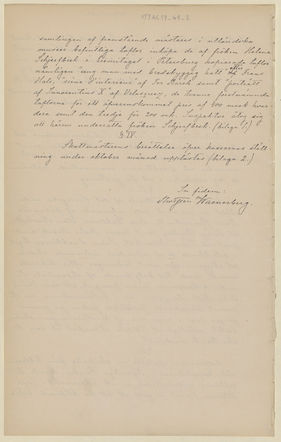 samlingen af framstående mästares i utländska
museer befintliga taflor inköpa de af fröken Helena
Schjerfbeck i Eremitaget i Petersburg kopierade taflor
nämligen "ung man med bredskyggig hatt" af Frans
Hals, "scène d'intérieur" af Ter Borch samt "porträtt
af Innocentius X" af Velasquez, de tvenne förstnämnda
taflorna för ett sammanlagdt pris af 600 mark hvar-
dera samt den tredje för 200 mk. Inspektor åtog sig
att härom underrätta fröken Schjerfbeck (bilaga 1)
§ IV.
Skattmästarens berättelse öfver kassornas ställ-
ning under oktober månad upplästes (bilaga 2.)
In fidem:
Wasenberg.